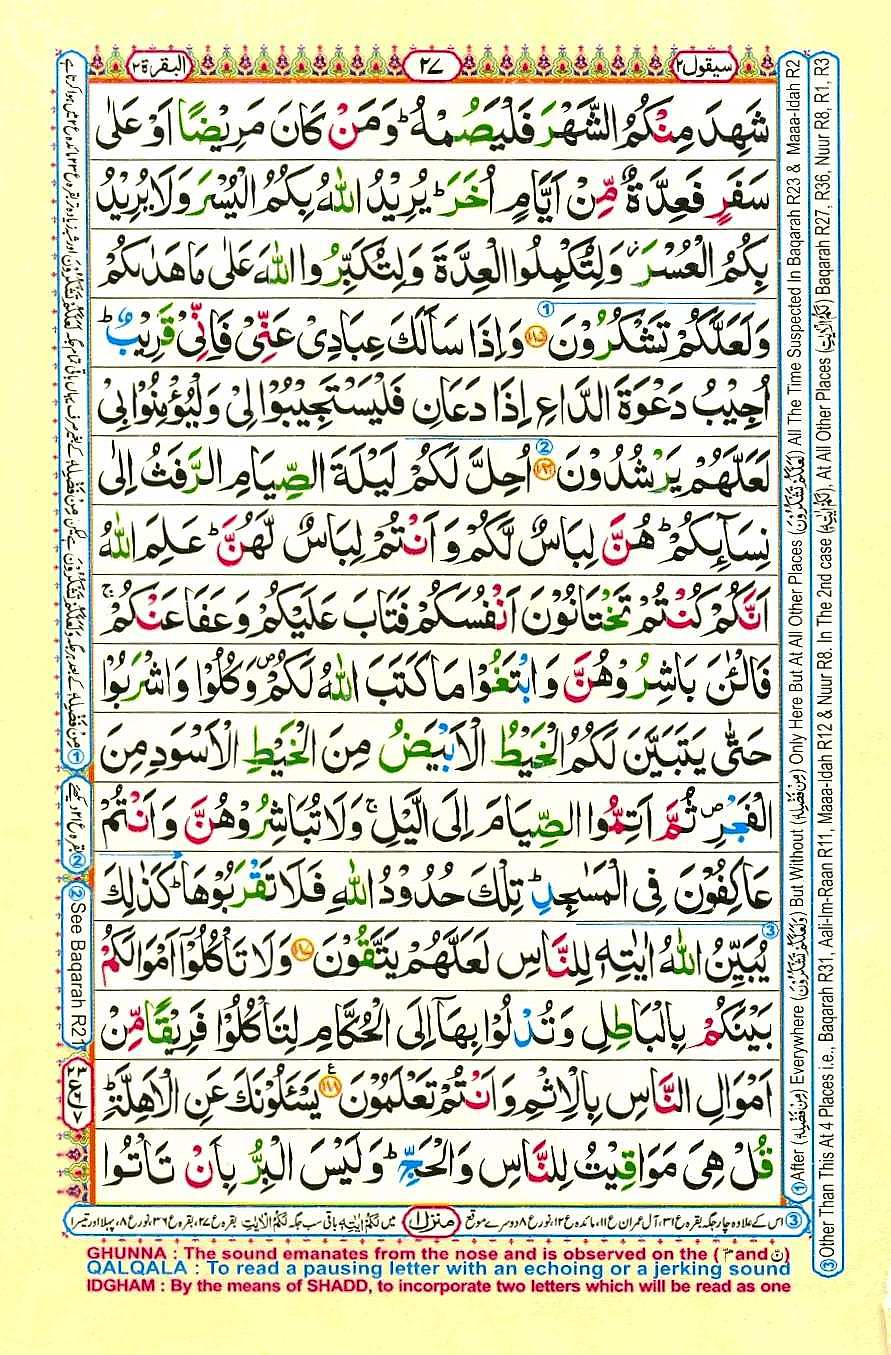 سيقول٢
٢٧
البقرة٢
شَهِدَ مِنْكُمُ الشَّهْرَ فَلْيَصُمْهُ ؕ وَمَنْ كَانَ مَرِيْضًا اَوْ عَلٰى
سَفَرٍ فَعِدَّةٌ مِّنْ اَيَّامٍ اُخَرَ ؕ يُرِيْدُ اللّٰهُ بِكُمُ الْيُسْرَ وَلَا يُرِيْدُ
بِكُمُ الْعُسْرَ ۫ وَلِتُكْمِلُوا الْعِدَّةَ وَلِتُكَبِّرُوا اللّٰهَ عَلٰى مَا هَدٰىكُمْ
وَلَعَلَّكُمْ تَشْكُرُوْنَ ﴿۱۸۵﴾ وَاِذَا سَاَلَكَ عِبَادِىْ عَنِّىْ فَاِنِّىْ قَرِيْبٌ ؕ
اُجِيْبُ دَعْوَةَ الدَّاعِ اِذَا دَعَانِ فَلْيَسْتَجِيْبُوْا لِىْ وَلْيُؤْمِنُوْا بِىْ
لَعَلَّهُمْ يَرْشُدُوْنَ ﴿۱۸۶﴾ اُحِلَّ لَكُمْ لَيْلَةَ الصِّيَامِ الرَّفَثُ اِلٰى
نِسَآئِكُمْ ؕ هُنَّ لِبَاسٌ لَّكُمْ وَاَنْتُمْ لِبَاسٌ لَّهُنَّ ؕ عَلِمَ اللّٰهُ
اَنَّكُمْ كُنْتُمْ تَخْتَانُوْنَ اَنْفُسَكُمْ فَتَابَ عَلَيْكُمْ وَعَفَا عَنْكُمْ ۚ
فَالْئٰنَ بَاشِرُوْهُنَّ وَابْتَغُوْا مَا كَتَبَ اللّٰهُ لَكُمْ ۪ وَكُلُوْا وَاشْرَبُوْا
حَتّٰى يَتَبَيَّنَ لَكُمُ الْخَيْطُ الْاَبْيَضُ مِنَ الْخَيْطِ الْاَسْوَدِ مِنَ
الْفَجْرِ ۪ ثُمَّ اَتِمُّوا الصِّيَامَ اِلَى الَّيْلِ ۚ وَلَا تُبَاشِرُوْهُنَّ وَاَنْتُمْ
عَاكِفُوْنَ فِى الْمَسٰجِدِ ؕ تِلْكَ حُدُوْدُ اللّٰهِ فَلَا تَقْرَبُوْهَا ؕ كَذٰلِكَ
يُبَيِّنُ اللّٰهُ اٰيٰتِهٖ لِلنَّاسِ لَعَلَّهُمْ يَتَّقُوْنَ ﴿۱۸۷﴾ وَلَا تَاْكُلُوْٓا اَمْوَالَكُمْ
بَيْنَكُمْ بِالْبَاطِلِ وَتُدْلُوْا بِهَآ اِلَى الْحُكَّامِ لِتَاْكُلُوْا فَرِيْقًا مِّنْ
اَمْوَالِ النَّاسِ بِالْاِثْمِ وَاَنْتُمْ تَعْلَمُوْنَ ﴿۱۸۸﴾ يَسْـَٔلُوْنَكَ عَنِ الْاَهِلَّةِ ؕ
قُلْ هِىَ مَوَاقِيْتُ لِلنَّاسِ وَالْحَجِّ ؕ وَلَيْسَ الْبِرُّ بِاَنْ تَاْتُوا
② See Baqarah R21
① After (مِنْ فَضْلِهٖ) Everywhere (وَلَعَلَّكُمْ تَشْكُرُوْنَ) But Without (مِنْ فَضْلِهٖ) Only Here But At All Other Places (لَعَلَّكُمْ تَشْكُرُوْنَ) All The Time Suspected In Baqarah R23 & Maaa-Idah R2
③ Other Than This At 4 Places i.e., Baqarah R31, Aali-Im-Raan R11, Maaa-Idah R12 & Nuur R8. In The 2nd case (لَكُمْ اٰيٰتِهٖ), At All Other Places (لَكُمُ الْاٰيٰتِ) Baqarah R27, R36, Nuur R8, R1, R3
③ اس کے علاوہ چار جگہ بقرہ ع ۳۱، آل عمران ع ۱۱، مائدہ ع ۱۲، نور ع ۸ دوسرے موقع
منزل ۱
میں لَكُمْ اٰيٰتِهٖ باقی سب جگہ لَكُمُ الْاٰيٰتِ بقرہ ع ۲۷، بقرہ ع ۳۶، نور ع ۸، پہلا اور تیسرا
GHUNNA : The sound emanates from the nose and is observed on the ( مّ and نّ )
QALQALA : To read a pausing letter with an echoing or a jerking sound
IDGHAM : By the means of SHADD, to incorporate two letters which will be read as one